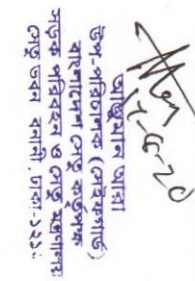 ২-৫-২০
আঞ্জুমান আরা
উপ-পরিচালক (সেইফগার্ড)
বাংলাদেশ সেতু কর্তৃপক্ষ
সড়ক পরিবহন ও সেতু মন্ত্রণালয়
সেতু ভবন বনানী, ঢাকা-১২১২